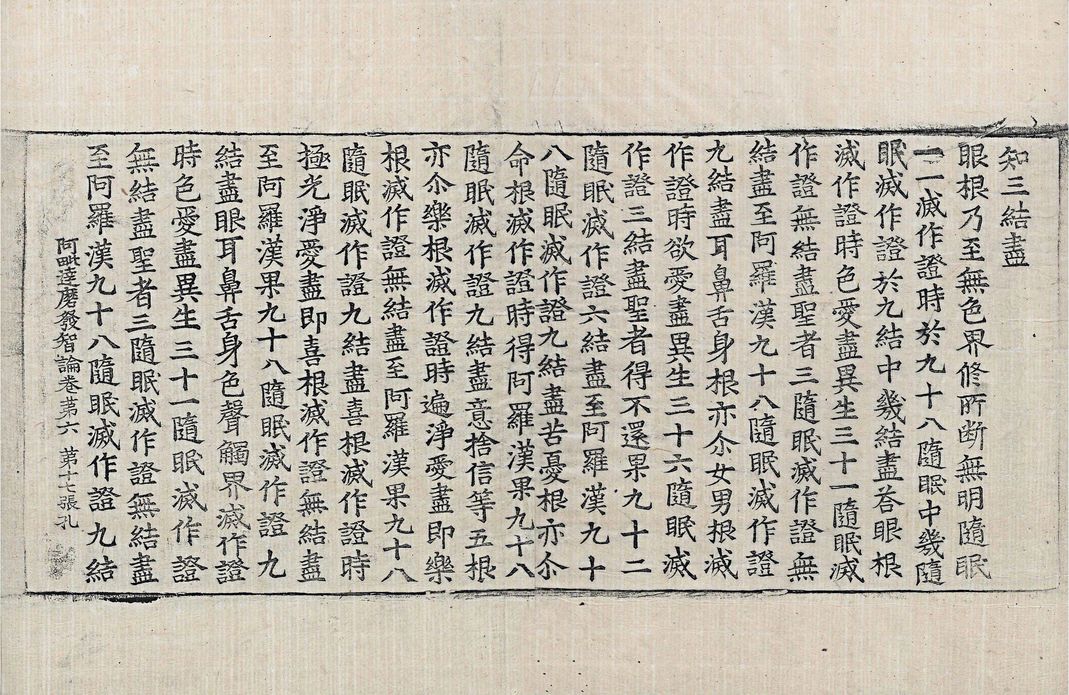 知三結盡
眼根乃至無色界修所断無明隨眠
一一滅作證時於九十八隨眠中幾隨
眠滅作證於九結中幾結盡荅眼根
滅作證時色愛盡異生三十一隨眠滅
作證無結盡聖者三隨眠滅作證無
結盡至阿羅漢九十八隨眠滅作證
九結盡耳鼻舌身根亦尒女男根滅
作證時欲愛盡異生三十六隨眠滅
作證三結盡聖者得不還果九十二
隨眠滅作證六結盡至阿羅漢九十
八隨眠滅作證九結盡苦憂根亦尒
命根滅作證時得阿羅漢果九十八
隨眠滅作證九結盡意捨信等五根
亦尒樂根滅作證時遍淨愛盡即樂
根滅作證無結盡至阿羅漢果九十八
隨眠滅作證九結盡喜根滅作證時
極光淨愛盡即喜根滅作證無結盡
至阿羅漢果九十八隨眠滅作證九
結盡眼耳鼻舌身色聲觸界滅作證
時色愛盡異生三十一隨眠滅作證
無結盡聖者三隨眠滅作證無結盡
至阿羅漢九十八隨眠滅作證九結
阿毗達磨發智論卷第六 第十七張 孔